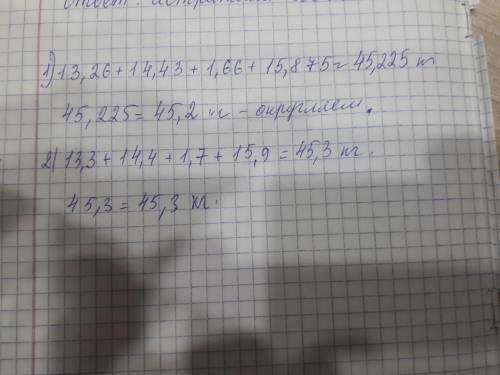 ответ:
1) 13,26 + 14,43 + 1,66 + 15,875 = 45,225 кг
45,225 = 45,2 кг - округляем.
2) 13,3 + 14,4 + 1,7 + 15,9 = 45,3 кг.
45,3 = 45,3 кг.